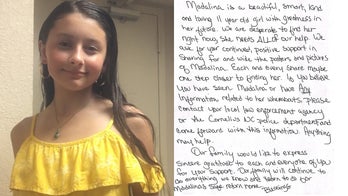 Madalina is a beautiful, smart, kind
and loving 11 year old girl with greatness in
her future. We are desperate to find her
right now, she needs ALL of our help. We
ask for your continued, positive support in
sharing far and wide the posters and pictures
of Madalina. Each and every share maybe
one step closer to finding her. If you believe
you have seen Madalina or have Any
information related to her whereabouts please
contact your local law enforcement agency
or the Cornelius NC police department and
come forward with this information. Anything
may help.
Our family would like to express
sincere gratitude to each and everyone of you
for your support. Our family will continue to
do everything we know and
Madalina's safe return home.